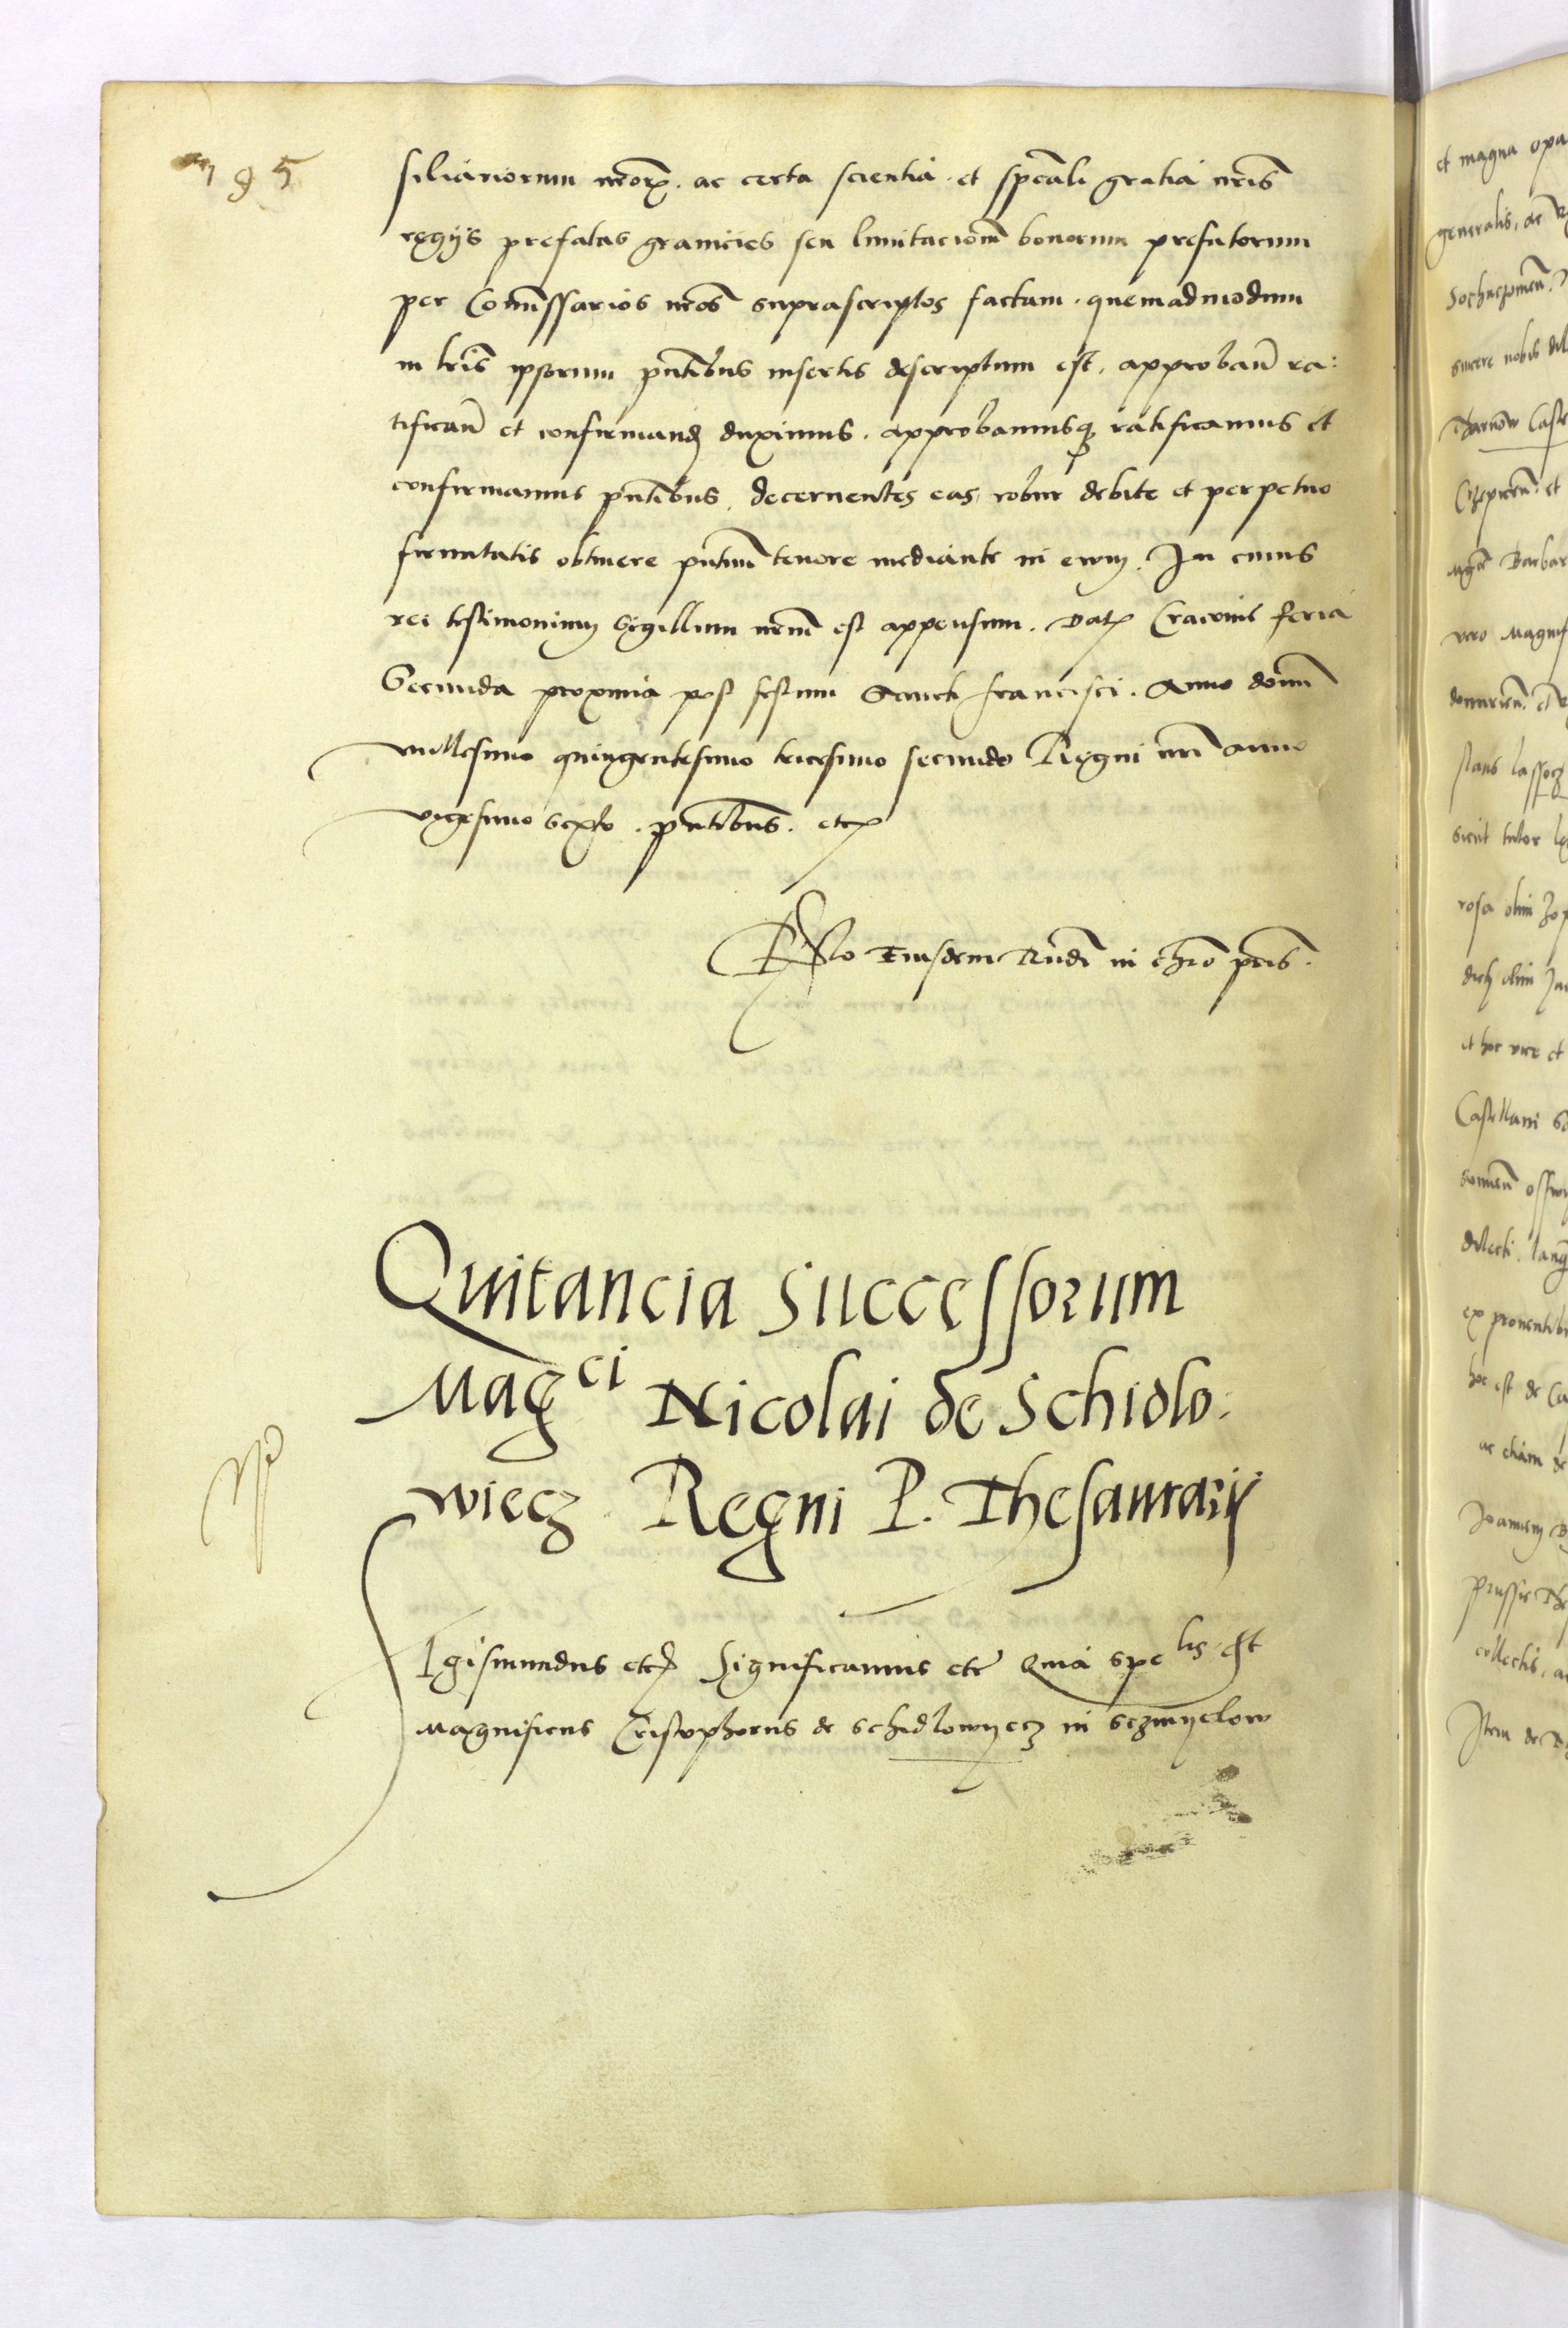 785
siliariorum nrõrꝫ. ac certa scientia. et spẽali gratia nrĩs
regÿs prefatas granicies seu limitacionẽ bonorum prefatorum
per Cõmissarios nr̃os suprascriptos factam. quemadmodum
in lrĩs ipsorum pñtibus insertis descriptum est. approbañ ra:
tificañ et confirmanđ duximus. approbamusqꝫ ratificamus et
confirmamus pñtibus. decernentes eas, robur debite et perpetuo
firmitatis obtinere pñtiũ tenore mediante in ewm. In cuius
rei testimonium Sigillum nr̃m est appensum. Datꝫ Cracovie feria
Secunda proxima post festum Sancti francisci. Anno domĩ
millesimo quingentesimo tricesimo secundo Regni nrĩ anno
vigesimo sexto. pñtibus. etcꝫ
Rl̃o Eiusdem Rñdi in chrõ pr̃is.
Quitancia Successorum
Mag^ci Nicolai de Schidlo:
wiecz Regni P. Thesaurarÿ
Sigismundus etcꝫ Significamus etc̃ Quia spe^lis et
Magnificus Cristophorus de Schidlowyecz in Sczmyelow
et magna opa
generalis, ac
Sochaczowieñ.
sincere nobis dil
Tharnow Caste
et
Barbar
vero Magnif
stans lassocz
sicut tutor
rosa olim
dicti olim
et hoc vice et
Castellani
dilecti
ex proventib
hoc est de
ac etiam de
Joannem
Prussie
collectis, a
Item de